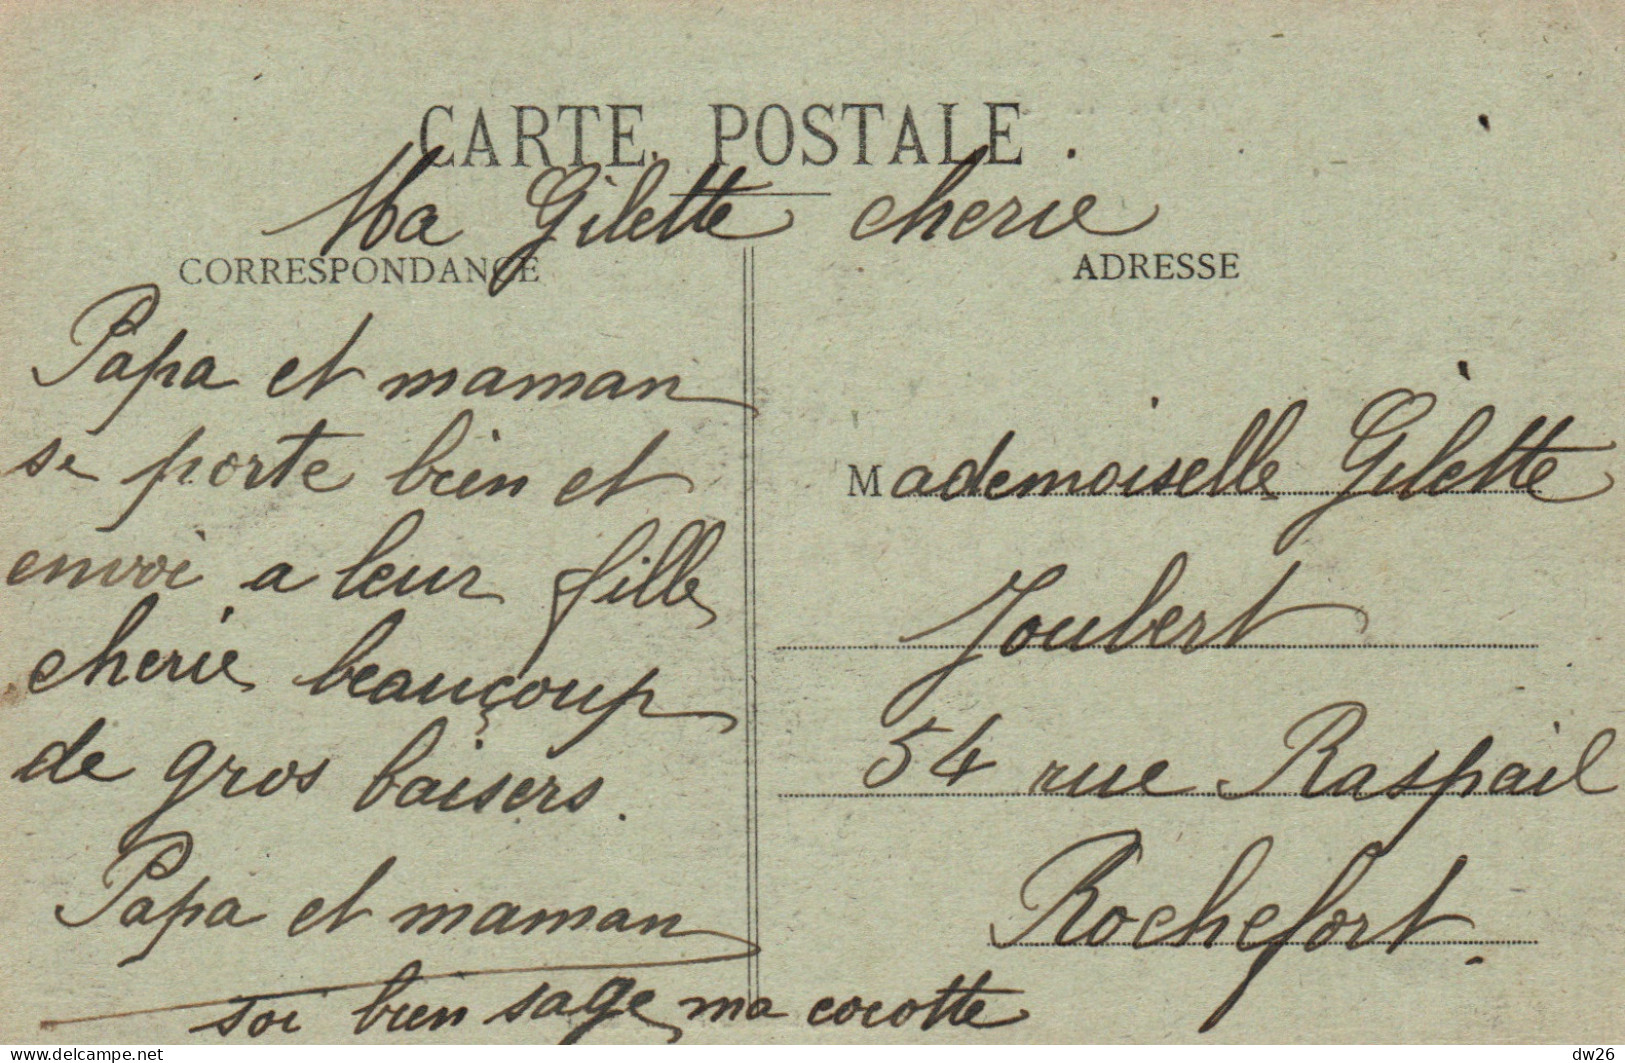 CARTE POSTALE
Ma Gilette cherie
CORRESPONDANCE
Papa et maman
se porte bien et
envoi a leur fille
cherie beauçoup
de gros baisers.
Papa et maman
soi bien sage ma cocotte
ADRESSE
Mademoiselle Gilette
Joubert
54 rue Raspail
Rochefort.
www.delcampe.net
dw26